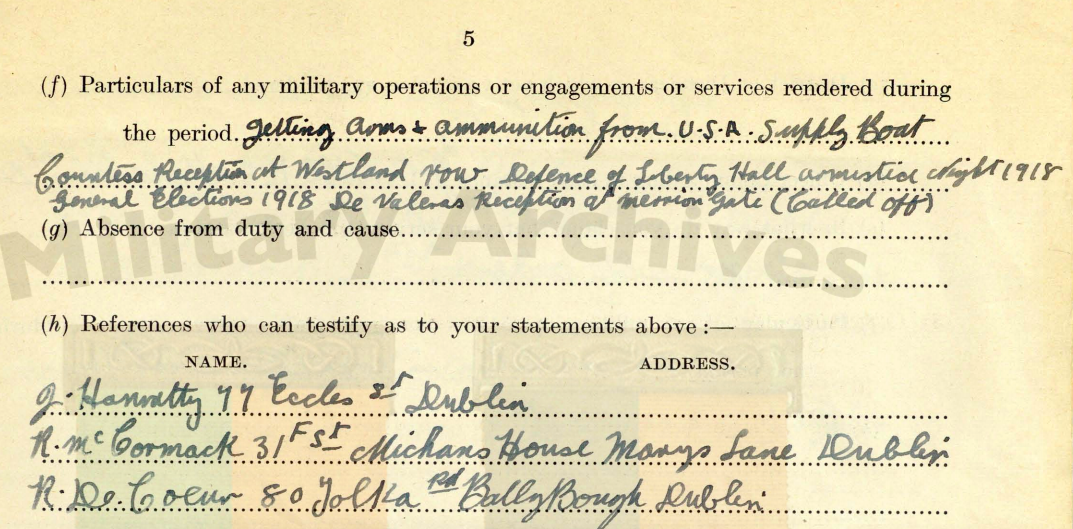 5
(f) Particulars of any military operations or engagements or services rendered during
the period. getting arms & ammunition from U.S.A. Supply Boat
Countess Reception at Westland row Defence of Liberty Hall armistice Night 1918
General Elections 1918 De Valeras Reception at merrion Gate (Called off)
(g) Absence from duty and cause
Military Archives
(h) References who can testify as to your statements above :—
NAME. ADDRESS.
J. Hanratty 77 Eccles St Dublin
R. McCormack 31F St Michans House Marys Lane Dublin
R. De. Coeur 80 Tolka Rd BallyBough Dublin